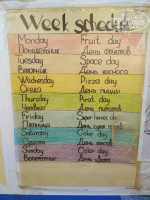 Week schedule
Monday Fruit day
Понедельник День фруктов
Tuesday Space day
Вторник День космоса
Wednesday Pizza day
Среда День пиццы
Thursday Pirat day
Четверг День пиратов
Friday Super heroes day
Пятница День супер героев
Saturday Cake day
Суббота День
Sunday Color day
Воскресенье День